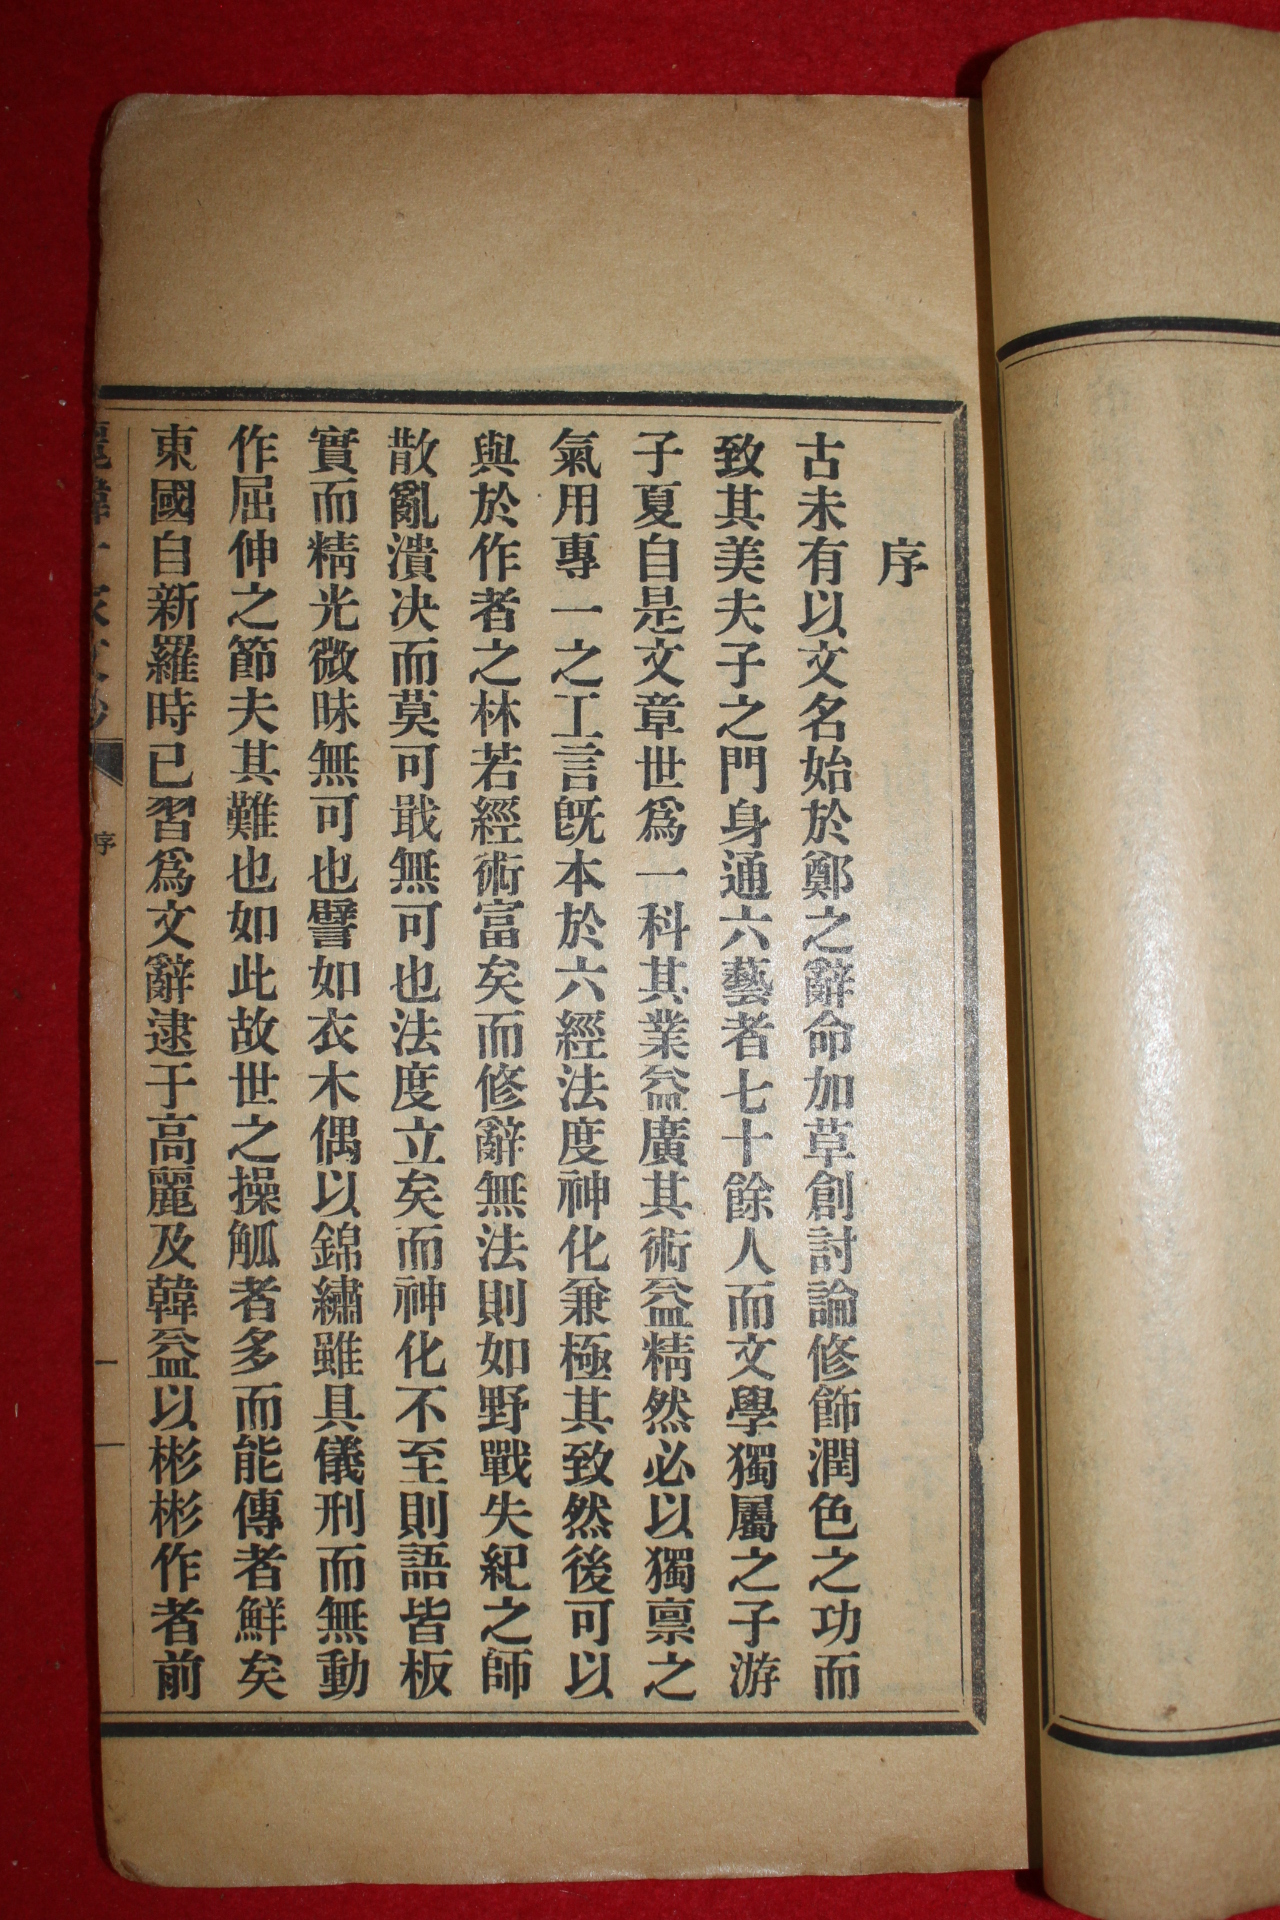 序
古未有以文名始於鄭之辭命加草創討論修飾潤色之功而
致其美夫子之門身通六藝者七十餘人而文學獨屬之子游
子夏自是文章世爲一科其業益廣其術益精然必以獨禀之
氣用專一之工言旣本於六經法度神化兼極其致然後可以
與於作者之林若經術富矣而修辭無法則如野戰失紀之師
散亂潰决而莫可戢無可也法度立矣而神化不至則語皆板
實而精光微昧無可也譬如衣木偶以錦繡雖具儀刑而無動
作屈伸之節夫其難也如此故世之操觚者多而能傳者鮮矣
東國自新羅時已習爲文辭逮于高麗及韓益以彬彬作者前
麗韓十家文鈔
序
一